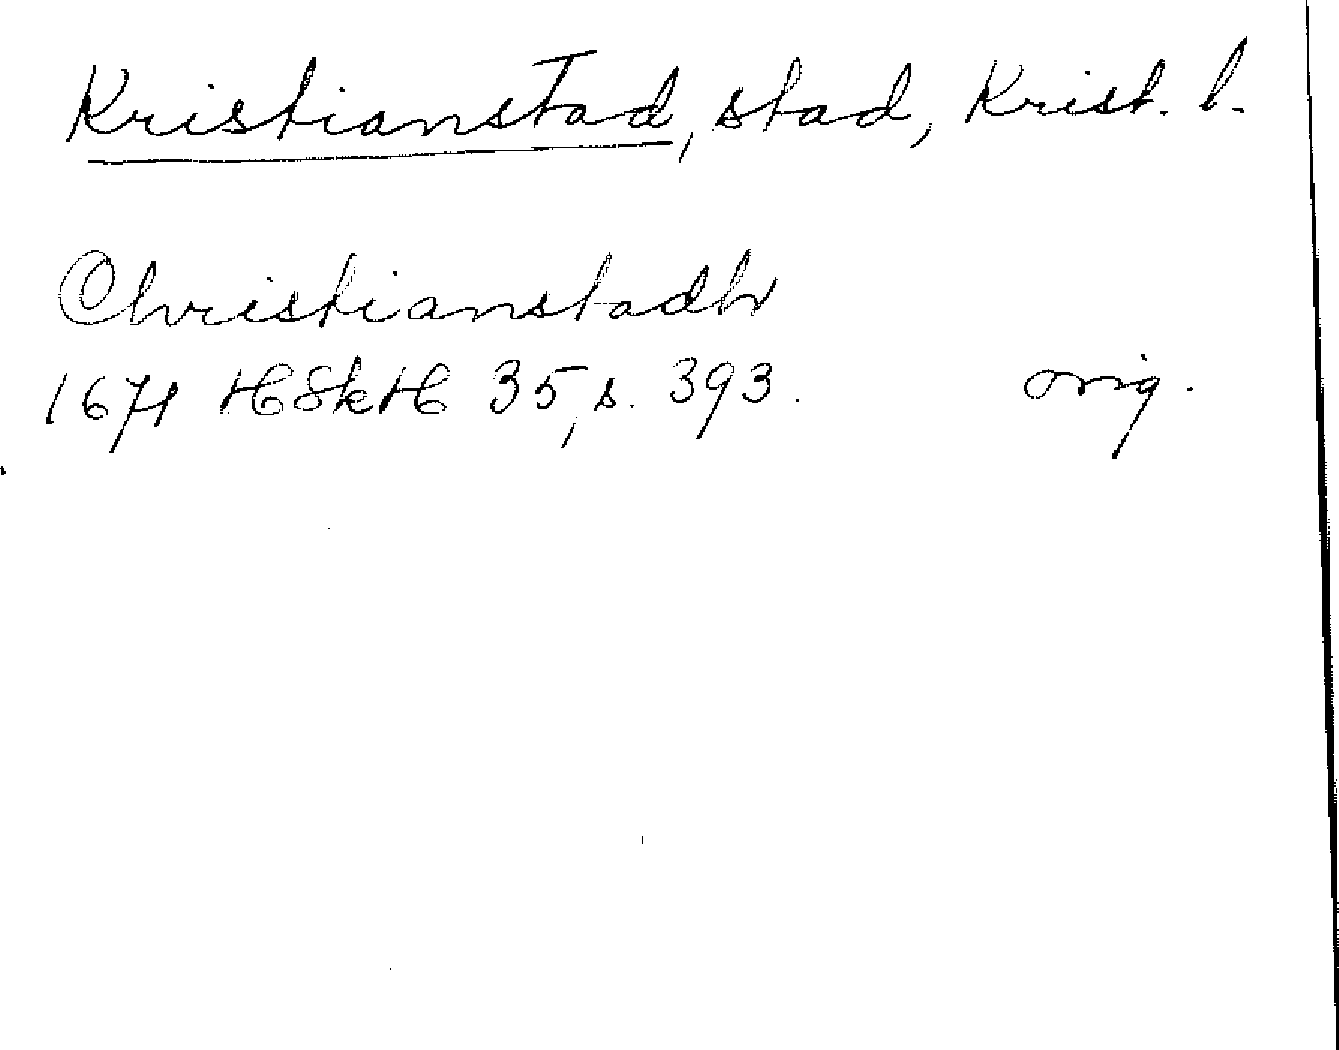 Kristianstad, stad, Krist. l.
Christianstadh
1671 HSkH 35, s. 393. orig.